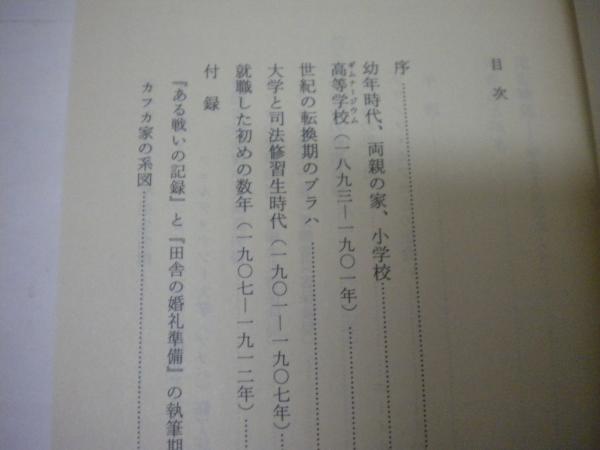 目次
序
幼年時代、両親の家、小学校
高等学校（一八九三―一九〇一年）
ギムナージウム
世紀の転換期のプラハ
大学と司法修習生時代（一九〇一―一九〇七年）
就職した初めの数年（一九〇七―一九一二年）
付録
『ある戦いの記録』と『田舎の婚礼準備』の執筆期
カフカ家の系図